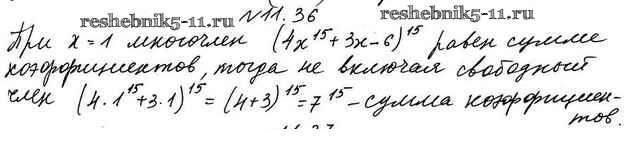 reshebnik5-11.ru
№11.36
reshebnik5-11.ru
При x=1 многочлен (4x¹⁵+3x-6)¹⁵ равен сумме
коэффициентов, тогда не включая свободный
член (4·1¹⁵+3·1)¹⁵=(4+3)¹⁵=7¹⁵-сумма коэффициен-
тов.